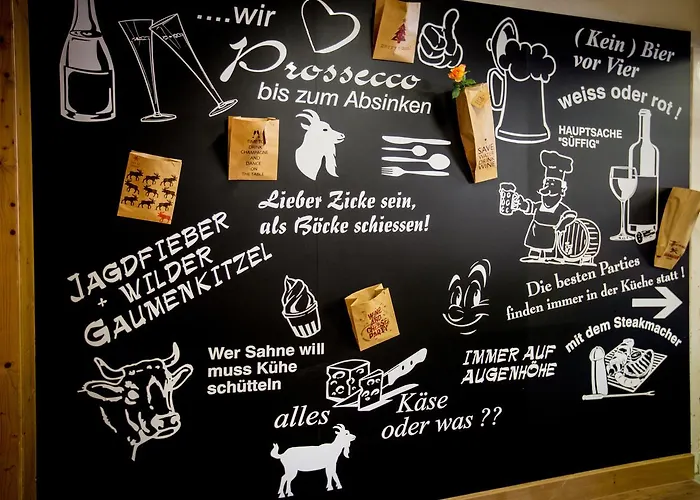 ....wir
Prossecco
bis zum Absinken
( Kein ) Bier
vor Vier
weiss oder rot !
HAUPTSACHE
"SÜFFIG"
TIME TO
DRINK
CHAMPAGNE
AND
DANCE
ON
THE TABLE
SAVE
WATER
DRINK
WINE
Lieber Zicke sein,
als Böcke schiessen!
JAGDFIEBER
+ WILDER
GAUMENKITZEL
Die besten Parties
finden immer in der Küche statt !
WINE
AND
CHEESE
PARTY
mit dem Steakmacher
Wer Sahne will
muss Kühe
schütteln
IMMER AUF
AUGENHÖHE
alles
Käse
oder was ??